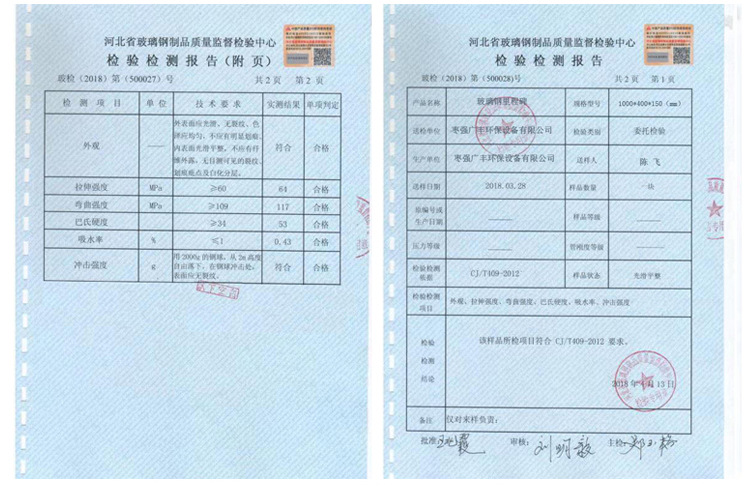 河北省玻璃钢制品质量监督检验中心
检验检测报告(附页)
玻检(2018)第(500027)号 共2页 第2页
检测项目 单位 技术要求 实测结果 单项判定
外观 —— 外表面应光滑、无裂纹、色
泽应均匀、不应有明显划痕,
内表面光滑平整,不应有纤
维外露、无目测可见的裂纹、
划痕疵点及白化分层。
符合 合格
拉伸强度 MPa ≥60 64 合格
弯曲强度 MPa ≥109 117 合格
巴氏硬度 ≥34 53 合格
吸水率 % ≤1 0.43 合格
冲击强度 g 用2000g的钢球,从2m高度
自由落下,在钢球冲击处,
表面应无裂纹。
符合 合格
以下空白
河北省玻璃钢制品质量监督检验中心
检验检测报告
玻检(2018)第(500028)号 共2页 第1页
产品名称 玻璃钢里程碑 规格型号 1000*400*150(mm)
送检单位 枣强广丰环保设备有限公司 检验类别 委托检验
生产单位 枣强广丰环保设备有限公司 送样人 陈飞
送样日期 2018.03.28 样品数量 一块
原编号或
生产日期 —— 样品等级 ——
压力等级 —— 管刚度等级 ——
检验检测
依据 CJ/T409-2012 样品状态 光滑平整
检验检测
项目 外观、拉伸强度、弯曲强度、巴氏硬度、吸水率、冲击强度
检验
检测
结论
该样品所检项目符合 CJ/T409-2012 要求。
备注 仅对来样负责;
批准: 审核:刘明毅 主检: